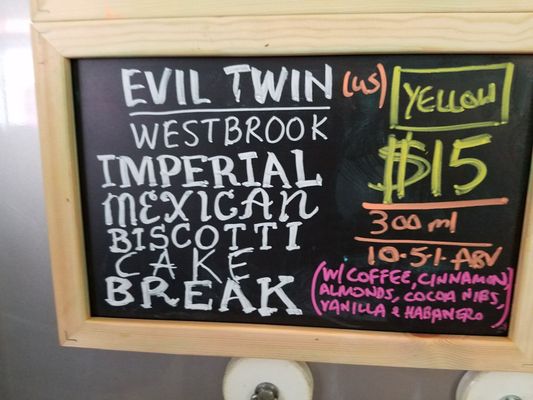 EVIL TWIN (US)
WESTBROOK
IMPERIAL
MEXICAN
BISCOTTI
CAKE
BREAK
YELLOW
$15
300 ml
10.5% ABV
(W/ COFFEE, CINNAMON,
ALMONDS, COCOA NIBS,
VANILLA & HABANERO)